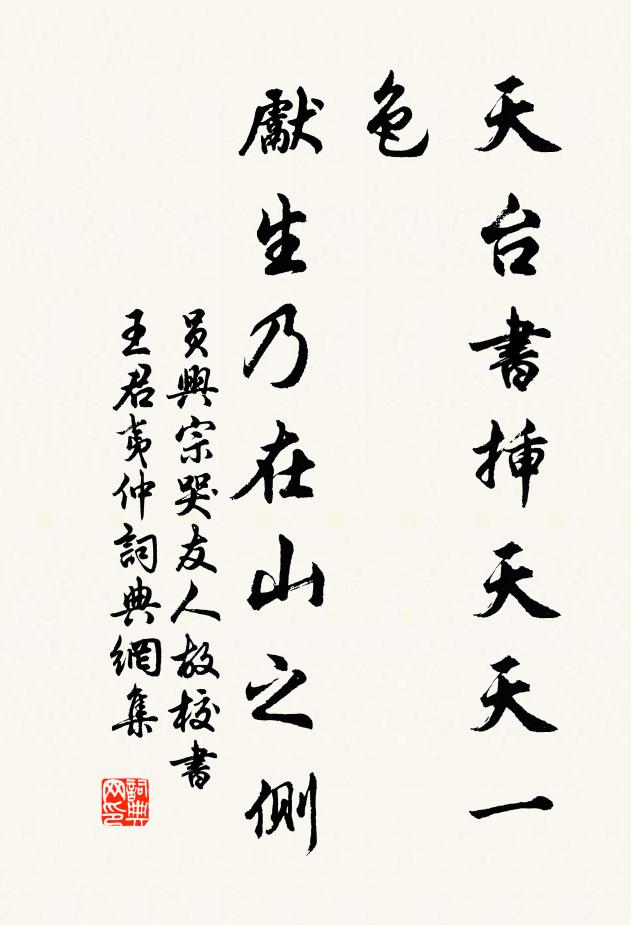 天台書挿天天一
色
獻生乃在山之側
員興宗哭友人故校書
王君夷仲詞典網集
詞典網印